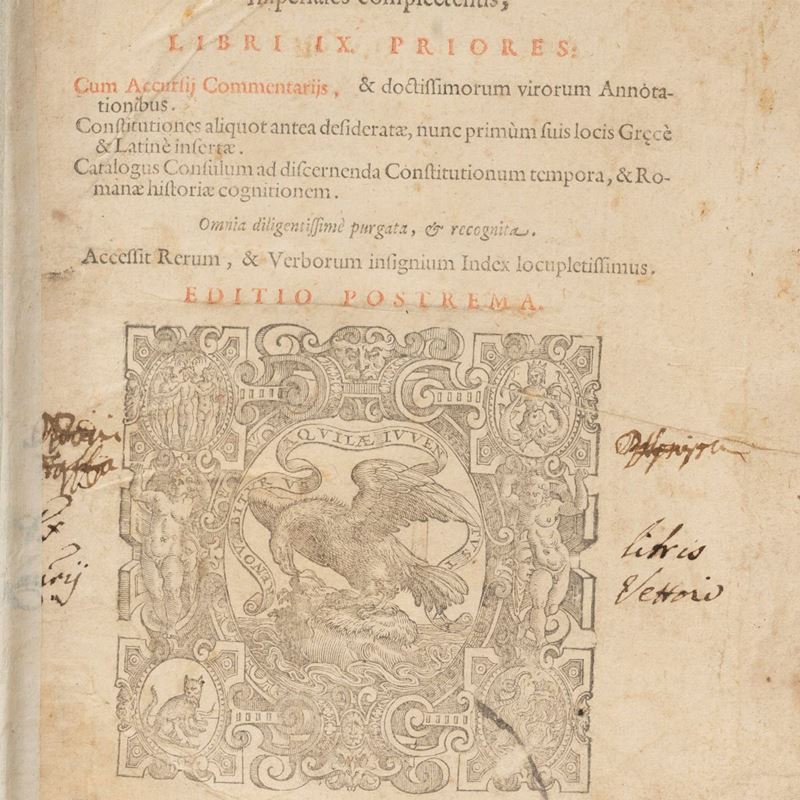 Imperiales complectentis,
LIBRI IX. PRIORES:
Cum Accursij Commentarijs, & doctissimorum virorum Annota-
tionibus.
Constitutiones aliquot antea desideratæ, nunc primùm suis locis Gręcè
& Latinè insertæ.
Catalogus Consulum ad discernenda Constitutionum tempora, & Ro-
manæ historiæ cognitionem.
Omnia diligentissimè purgata, & recognita.
Accessit Rerum, & Verborum insignium Index locupletissimus.
EDITIO POSTREMA.
RENOVABITUR VT AQVILÆ IVVEN TVS T
libris
Vettorio